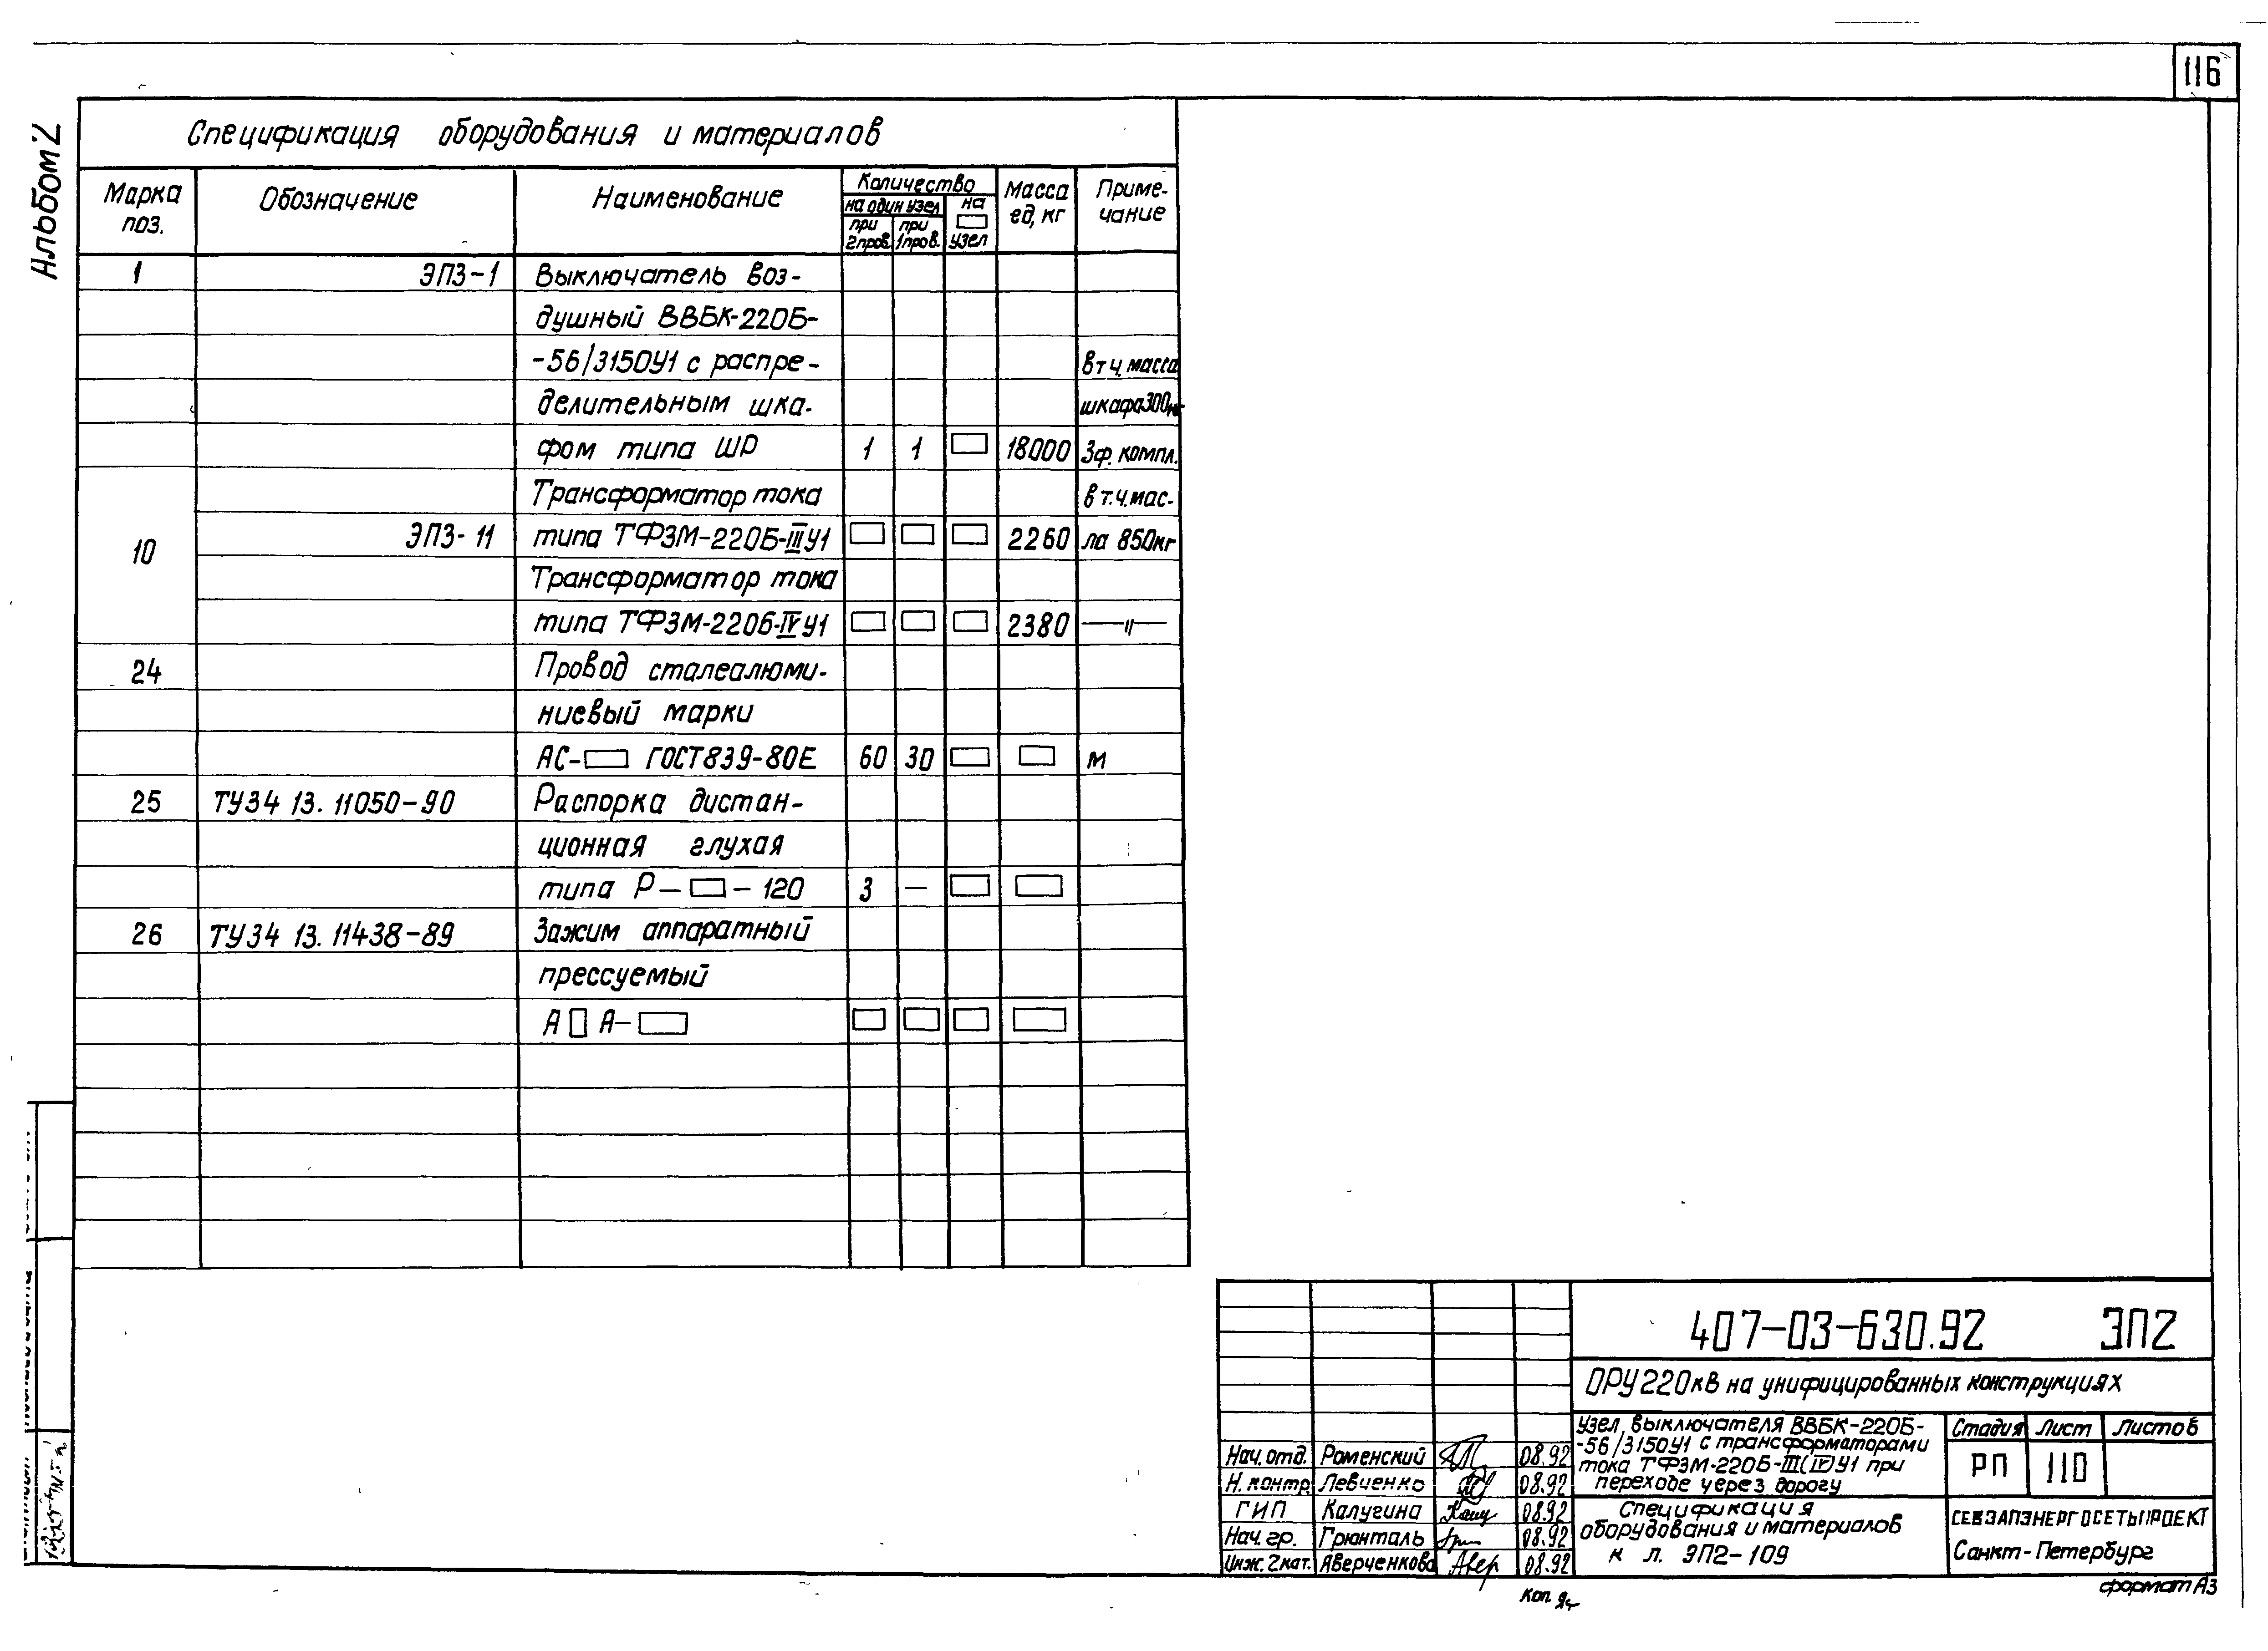 116
Альбом 2
Спецификация оборудования и материалов
Марка поз.
Обозначение
Наименование
Количество
на один узел
при 2 пров.
при 1 пров.
на □ узел
Масса ед, кг
Приме-
чание
1 ЭП3-1 Выключатель воз-
душный ВВБК-220Б-
-56/3150У1 с распре- в т.ч. масса
делительным шка- шкафа 300 кг
фом типа ШР 1 1 □ 18000 3ф. компл.
Трансформатор тока в т.ч. мас-
10 ЭП3-11 типа ТФЗМ-220Б-III У1 □ □ □ 2260 ла 850кг
Трансформатор тока
типа ТФЗМ-220Б-IV У1 □ □ □ 2380 —"—
24 Провод сталеалюми-
ниевый марки
АС-□ ГОСТ 839-80Е 60 30 □ □ м
25 ТУ34 13. 11050-90 Распорка дистан-
ционная глухая
типа Р-□-120 3 — □ □
26 ТУ34 13. 11438-89 Зажим аппаратный
прессуемый
А□А-□ □ □ □ □
407-03-630.92 ЭП2
ОРУ 220кВ на унифицированных конструкциях
Узел выключателя ВВБК-220Б-
-56/3150У1 с трансформаторами
тока ТФЗМ-220Б-III(IV)У1 при
переходе через дорогу
Стадия Лист Листов
РП 110
Нач. отд. Роменский 08.92
Н. контр. Левченко 08.92
ГИП Калугина 08.92
Нач. гр. Грюнталь 08.92
Инж. 2 кат. Аверченкова 08.92
Спецификация
оборудования и материалов
к л. ЭП2-109
СЕВЗАПЭНЕРГОСЕТЬПРОЕКТ
Санкт-Петербург
Коп.
формат А3